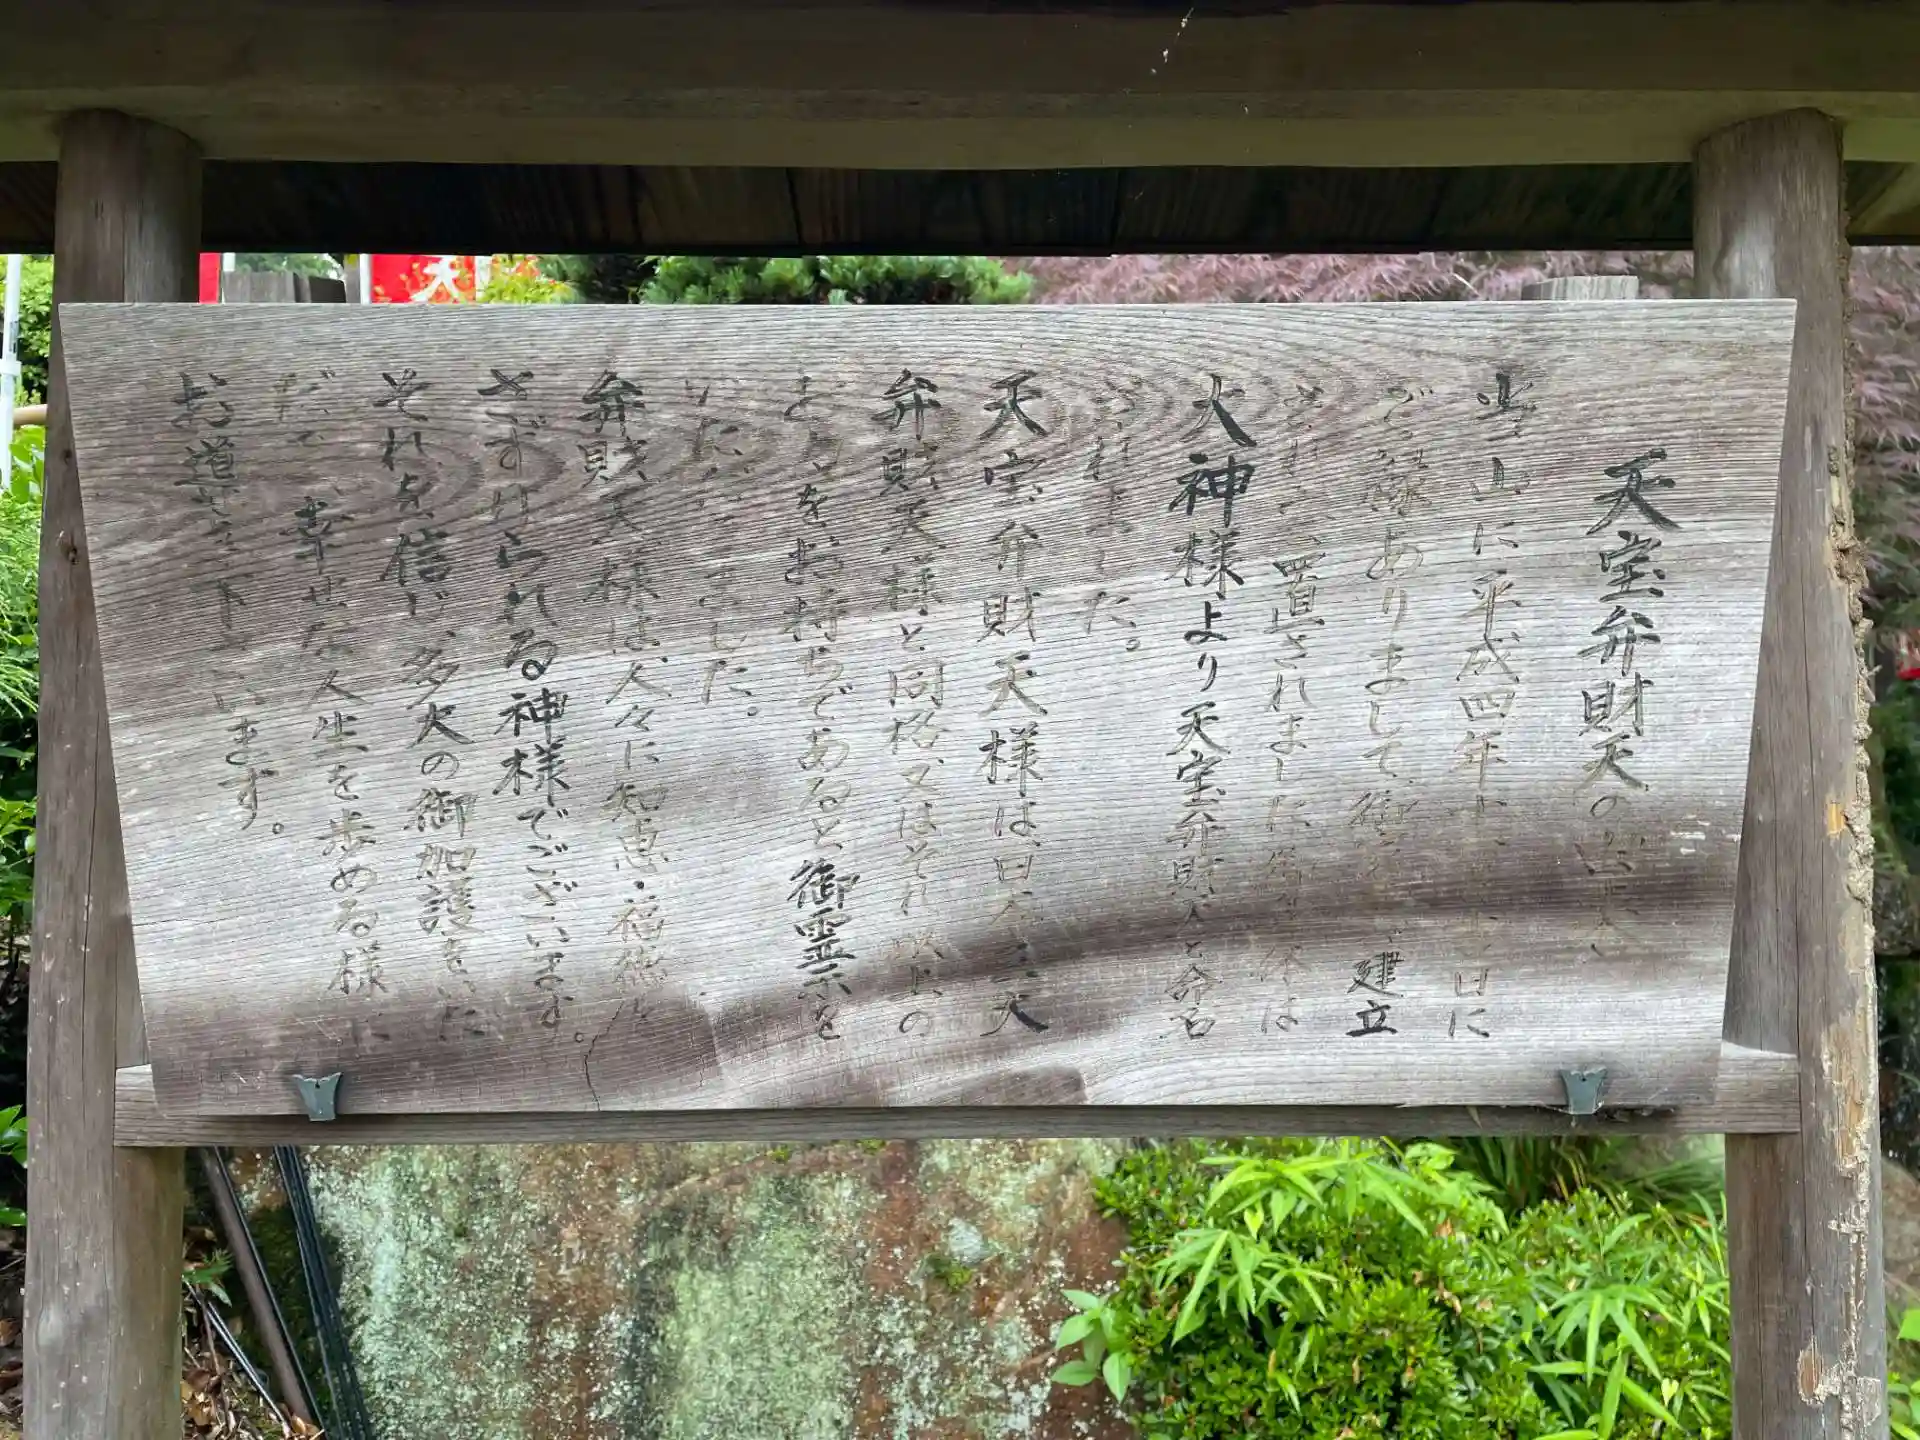 天宝弁財天の
此山に平成四年十 日に
ご縁ありまして、御 建立
され、安置されました 体は
大神様より天宝弁財天と命名
されました。
天宝弁財天様は日本三大
弁財天様と同格、又はそれ以上の
お力をお持ちであると御霊示を
いただきました。
弁財天様は、人々に知恵・福徳を
さずけられる神様でございます。
それを信じ、多大の御加護をいた
だて、幸せな人生を歩める様に
お導き下さいます。
大